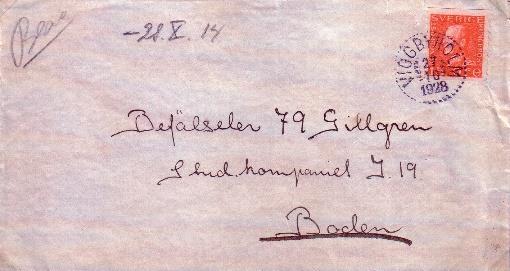 -28.X.14
SVERIGE
VIGGBYHOLM
27
10
1928
Befälselev 79 Gillgren
Stud.kompaniet I 19
Boden